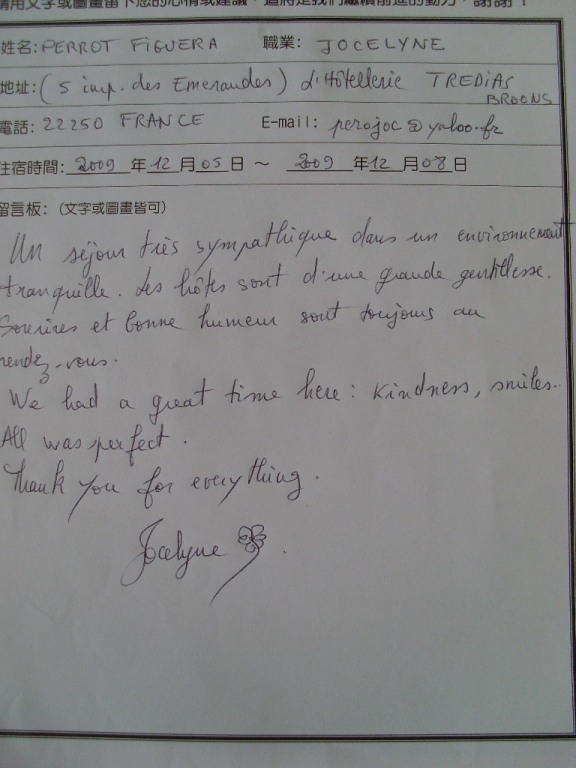 請用文字或圖畫留下您的心情或建議，這將是我們繼續前進的動力，謝謝！
姓名: PERROT FIGUERA 職業: JOCELYNE
地址: (5 imp. des Emeraudes) L'Hôtellerie TREDIAS
BROONS
電話: 22250 FRANCE E-mail: perojoc@yahoo.fr
住宿時間: 2009 年 12 月 05 日 ～ 2009 年 12 月 08 日
留言板: (文字或圖畫皆可)
Un séjour très sympathique dans un environnement
tranquille. Les hôtes sont d'une grande gentillesse.
Sourires et bonne humeur sont toujours au
rendez-vous.
We had a great time here: kindness, smiles..
All was perfect.
Thank you for everything.
Jocelyne